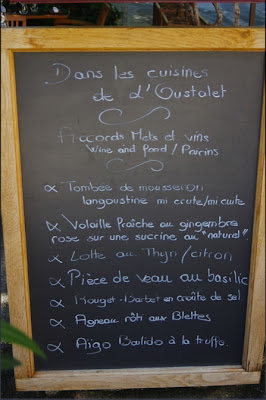 Dans les cuisines
de l'Oustalet
Accords Mets et vins
Wine and food / Pairins
Tombée de mousseron
langoustine mi crute/mi cuite
Volaille fraîche au gingembre
rose sur une sucrine au "naturel".
Lotte au Thyn/citron
Pièce de veau au basilic
Rouget-Barbet en croûte de sel.
Agneau rôti aux Blettes
Aïgo Boulido à la truffe.